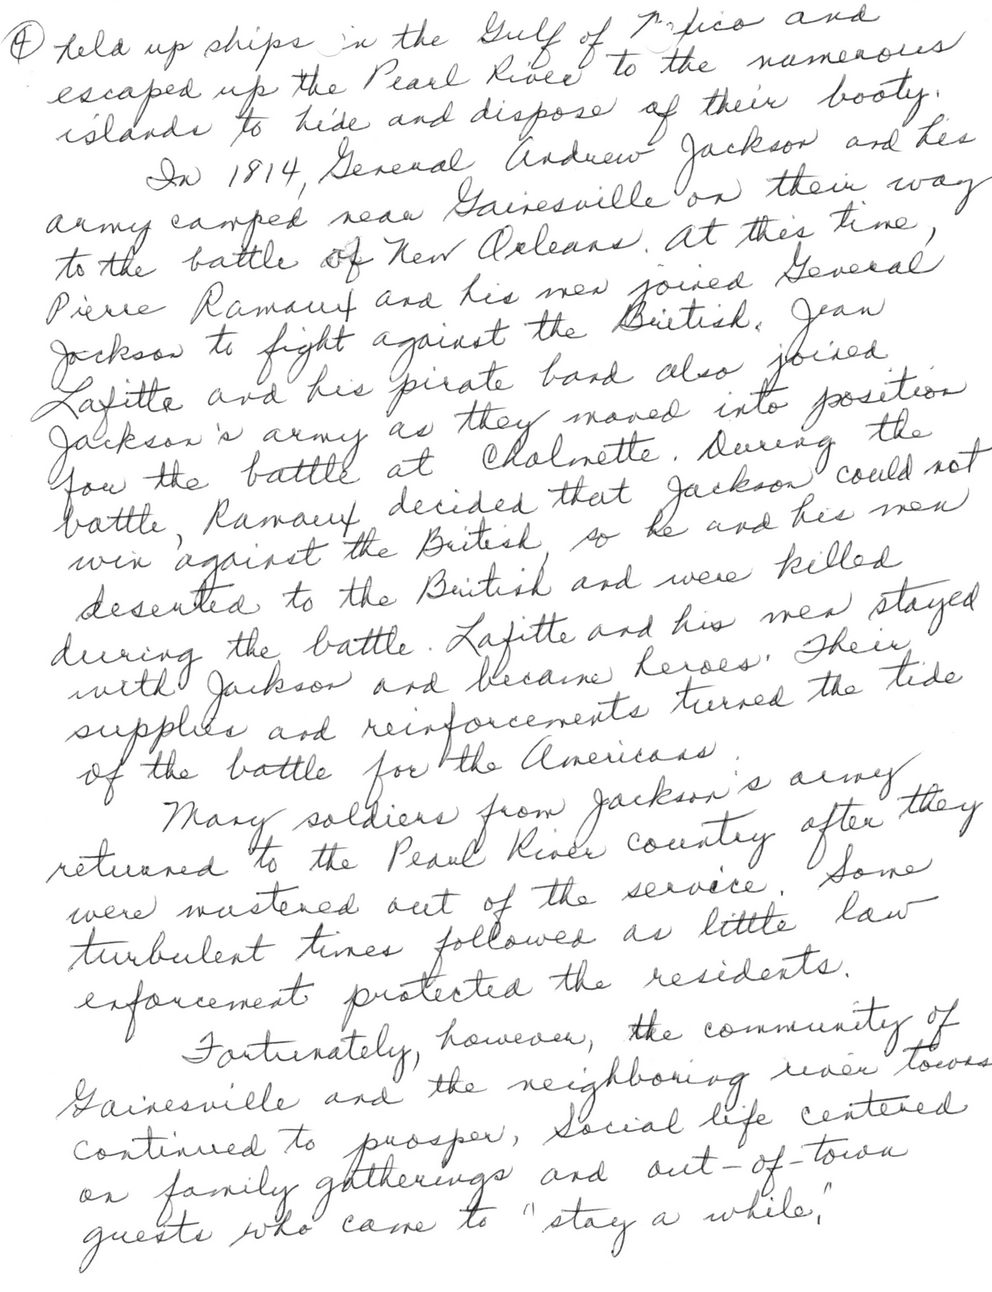 ④ held up ships in the Gulf of Mexico and
escaped up the Pearl River to the numerous
islands to hide and dispose of their booty.
In 1814, General Andrew Jackson and his
army camped near Gainesville on their way
to the battle of New Orleans. At this time,
Pierre Ramaux and his men joined General
Jackson to fight against the British. Jean
Lafitte and his pirate band also joined
Jackson's army as they moved into position
for the battle at Chalmette. During the
battle, Ramaux decided that Jackson could not
win against the British, so he and his men
deserted to the British and were killed
during the battle. Lafitte and his men stayed
with Jackson and became heroes. Their
supplies and reinforcements turned the tide
of the battle for the Americans.
Many soldiers from Jackson's army
returned to the Pearl River country after they
were mustered out of the service. Some
turbulent times followed as little law
enforcement protected the residents.
Fortunately, however, the community of
Gainesville and the neighboring river towns
continued to prosper. Social life centered
on family gatherings and out-of-town
guests who came to "stay a while."